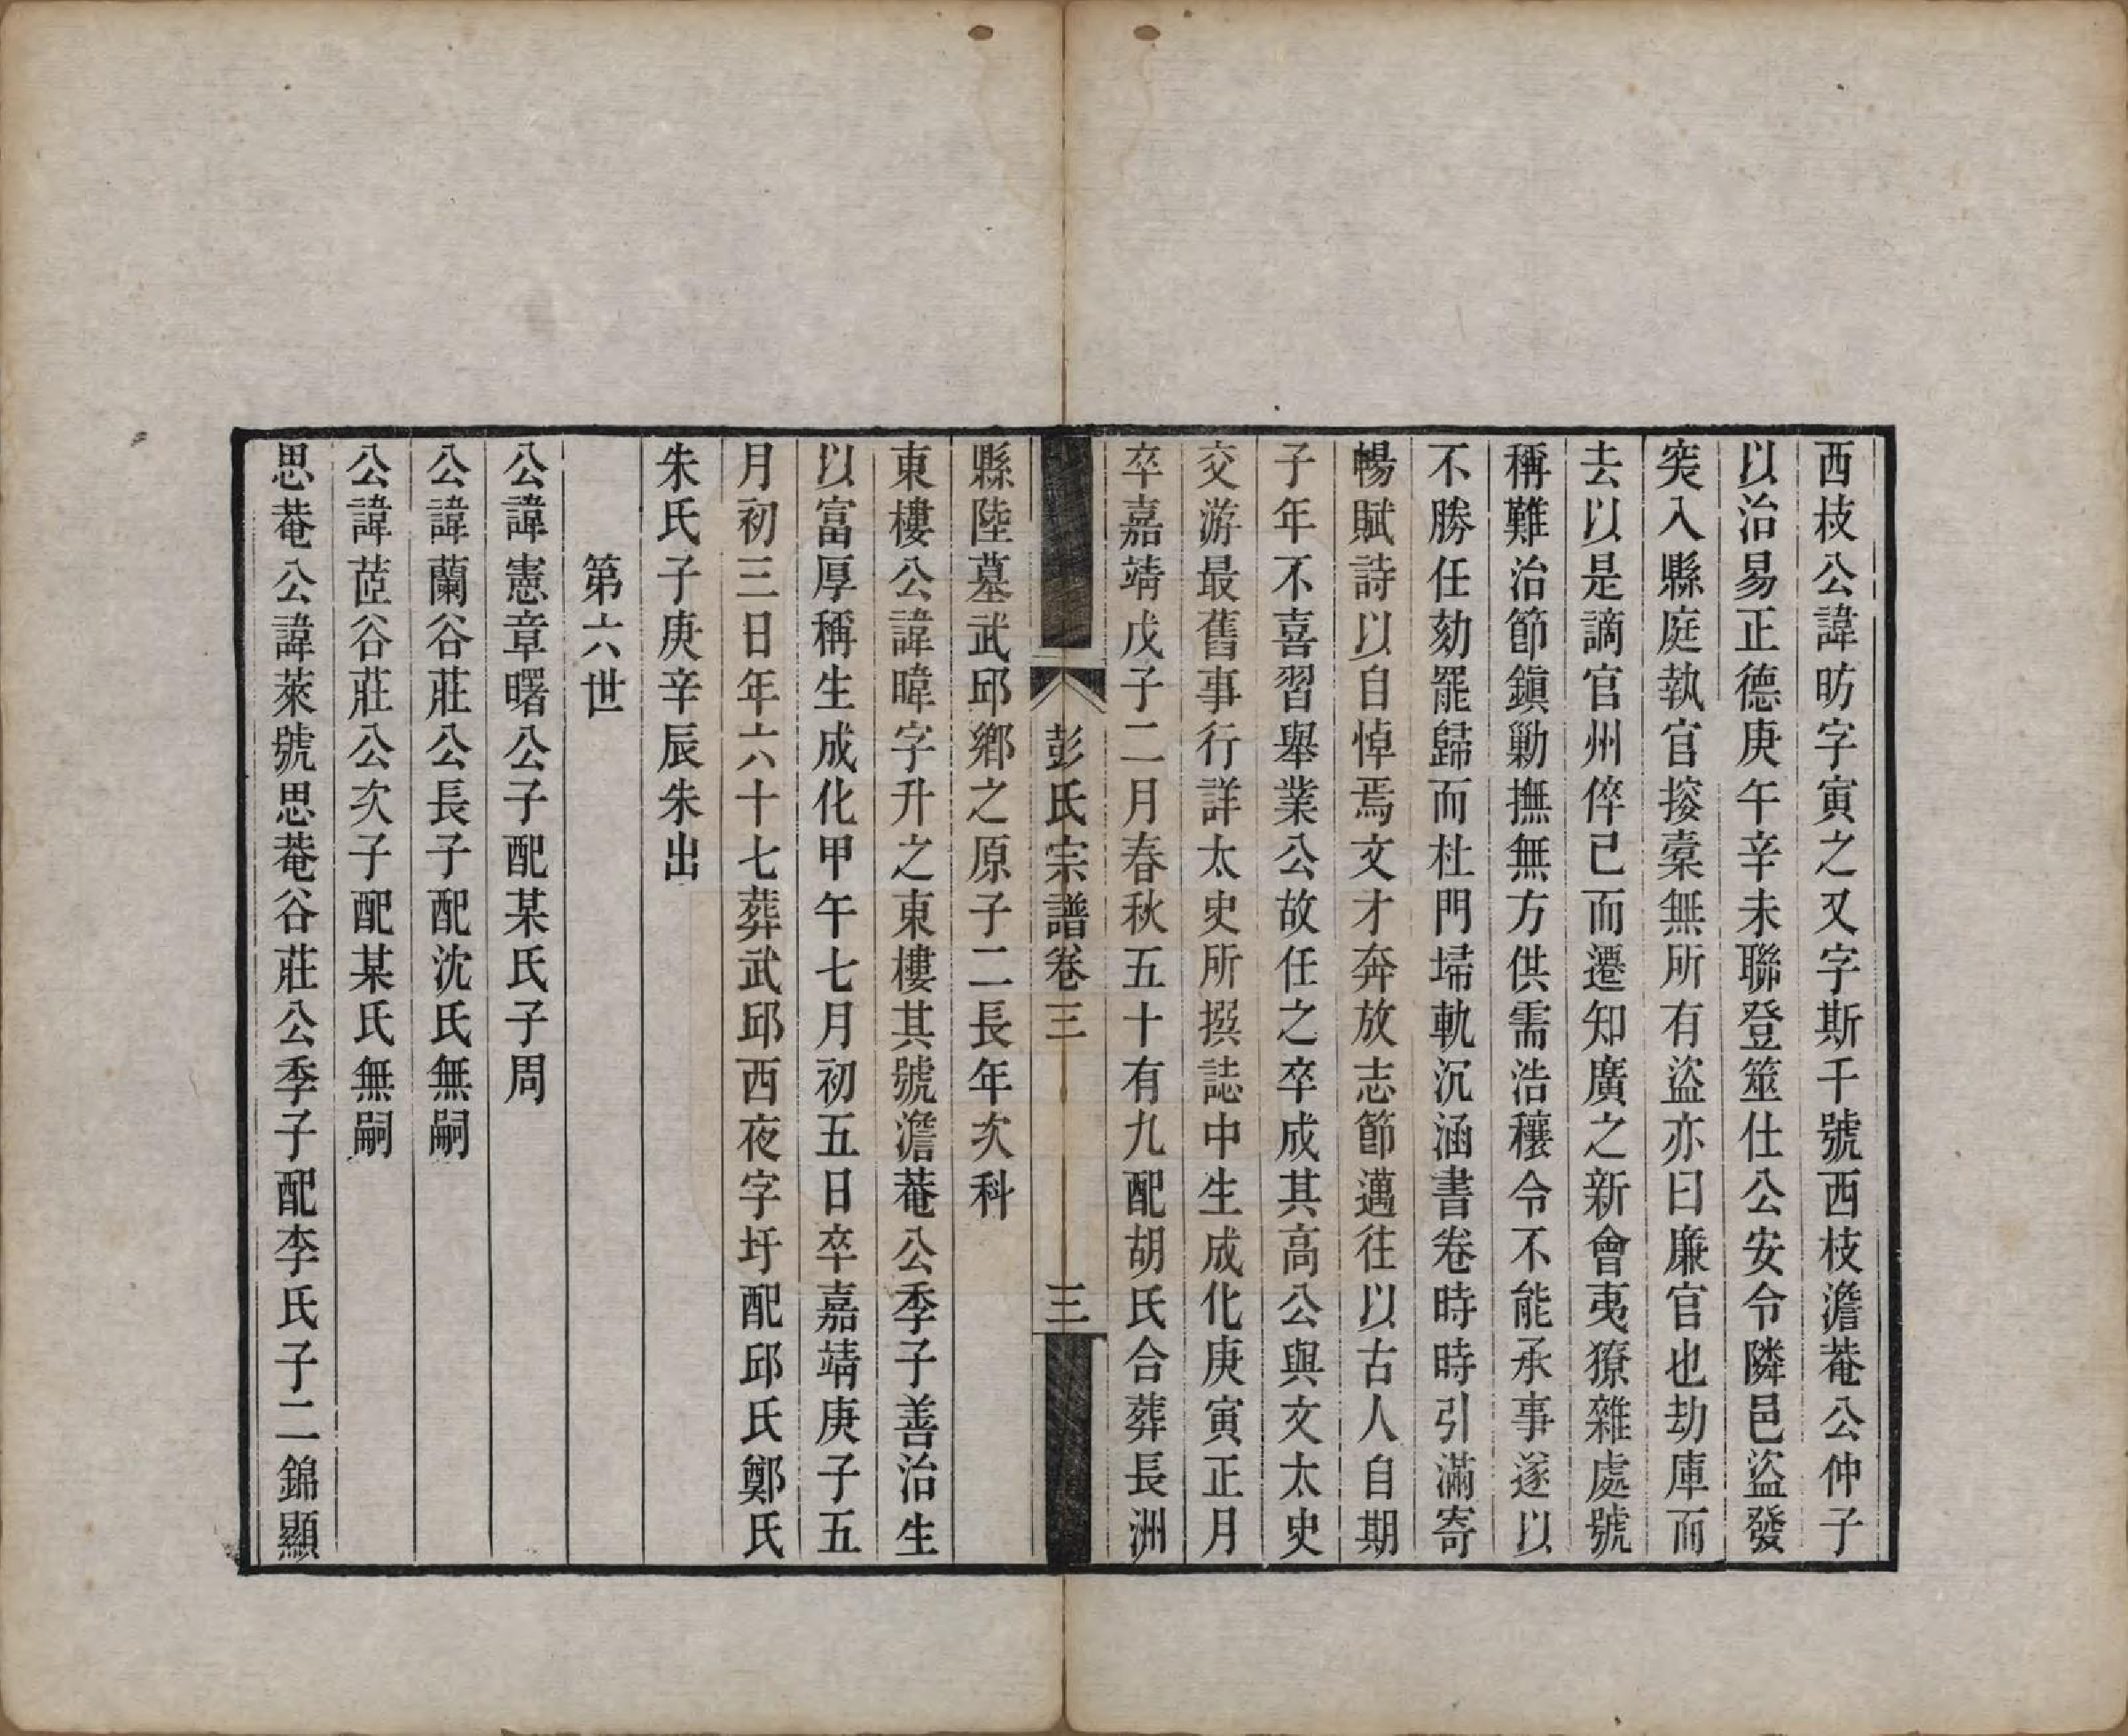 西枝公諱昉字寅之又字斯千號西枝澹菴公仲子
以治易正德庚午辛未聯登筮仕公安令隣邑盜發
突入縣庭執官搜橐無所有盜亦曰廉官也劫庫而
去以是謫官州倅已而遷知廣之新會夷獠雜處號
稱難治節鎭勦撫無方供需浩穰令不能承事遂以
不勝任劾罷歸而杜門埽軌沉涵書卷時時引滿寄
暢賦詩以自悼焉文才奔放志節邁往以古人自期
子年不喜習舉業公故任之卒成其高公與文太史
交游最舊事行詳太史所撰誌中生成化庚寅正月
卒嘉靖戊子二月春秋五十有九配胡氏合葬長洲
彭氏宗譜卷三 三
縣陸墓武邱鄉之原子二長年次科
東樓公諱暐字升之東樓其號澹菴公季子善治生
以富厚稱生成化甲午七月初五日卒嘉靖庚子五
月初三日年六十七葬武邱西夜字圩配邱氏鄭氏
朱氏子庚辛辰朱出
第六世
公諱憲章曙公子配某氏子周
公諱蘭谷莊公長子配沈氏無嗣
公諱茝谷莊公次子配某氏無嗣
思菴公諱萊號思菴谷莊公季子配李氏子二錦顯